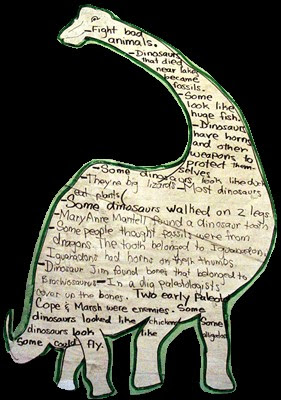 -Fight bad
animals.
-Dinosaurs
that died
near lakes
became
fossils.
-Some
look like
huge fish.
-Dinosaurs
have horns
and other
weapons to
protect them
selves.
-Some dinosaurs look like
-They're big lizards -Most dinosaurs
eat plants
-Some dinosaurs walked on 2 legs
-Mary Anne Mantell found a dinosaur tooth
-Some people thought fossils were from
dragons. The tooth belonged to Iguanodon.
Iguanodons had horns on their thumbs
-Dinosaur Jim found bones that belonged to
-In a dig
cover up the bones. Two early
Cope & Marsh were enemies. Some
dinosaurs looked like chickens Some
dinosaurs look like
Some could fly.